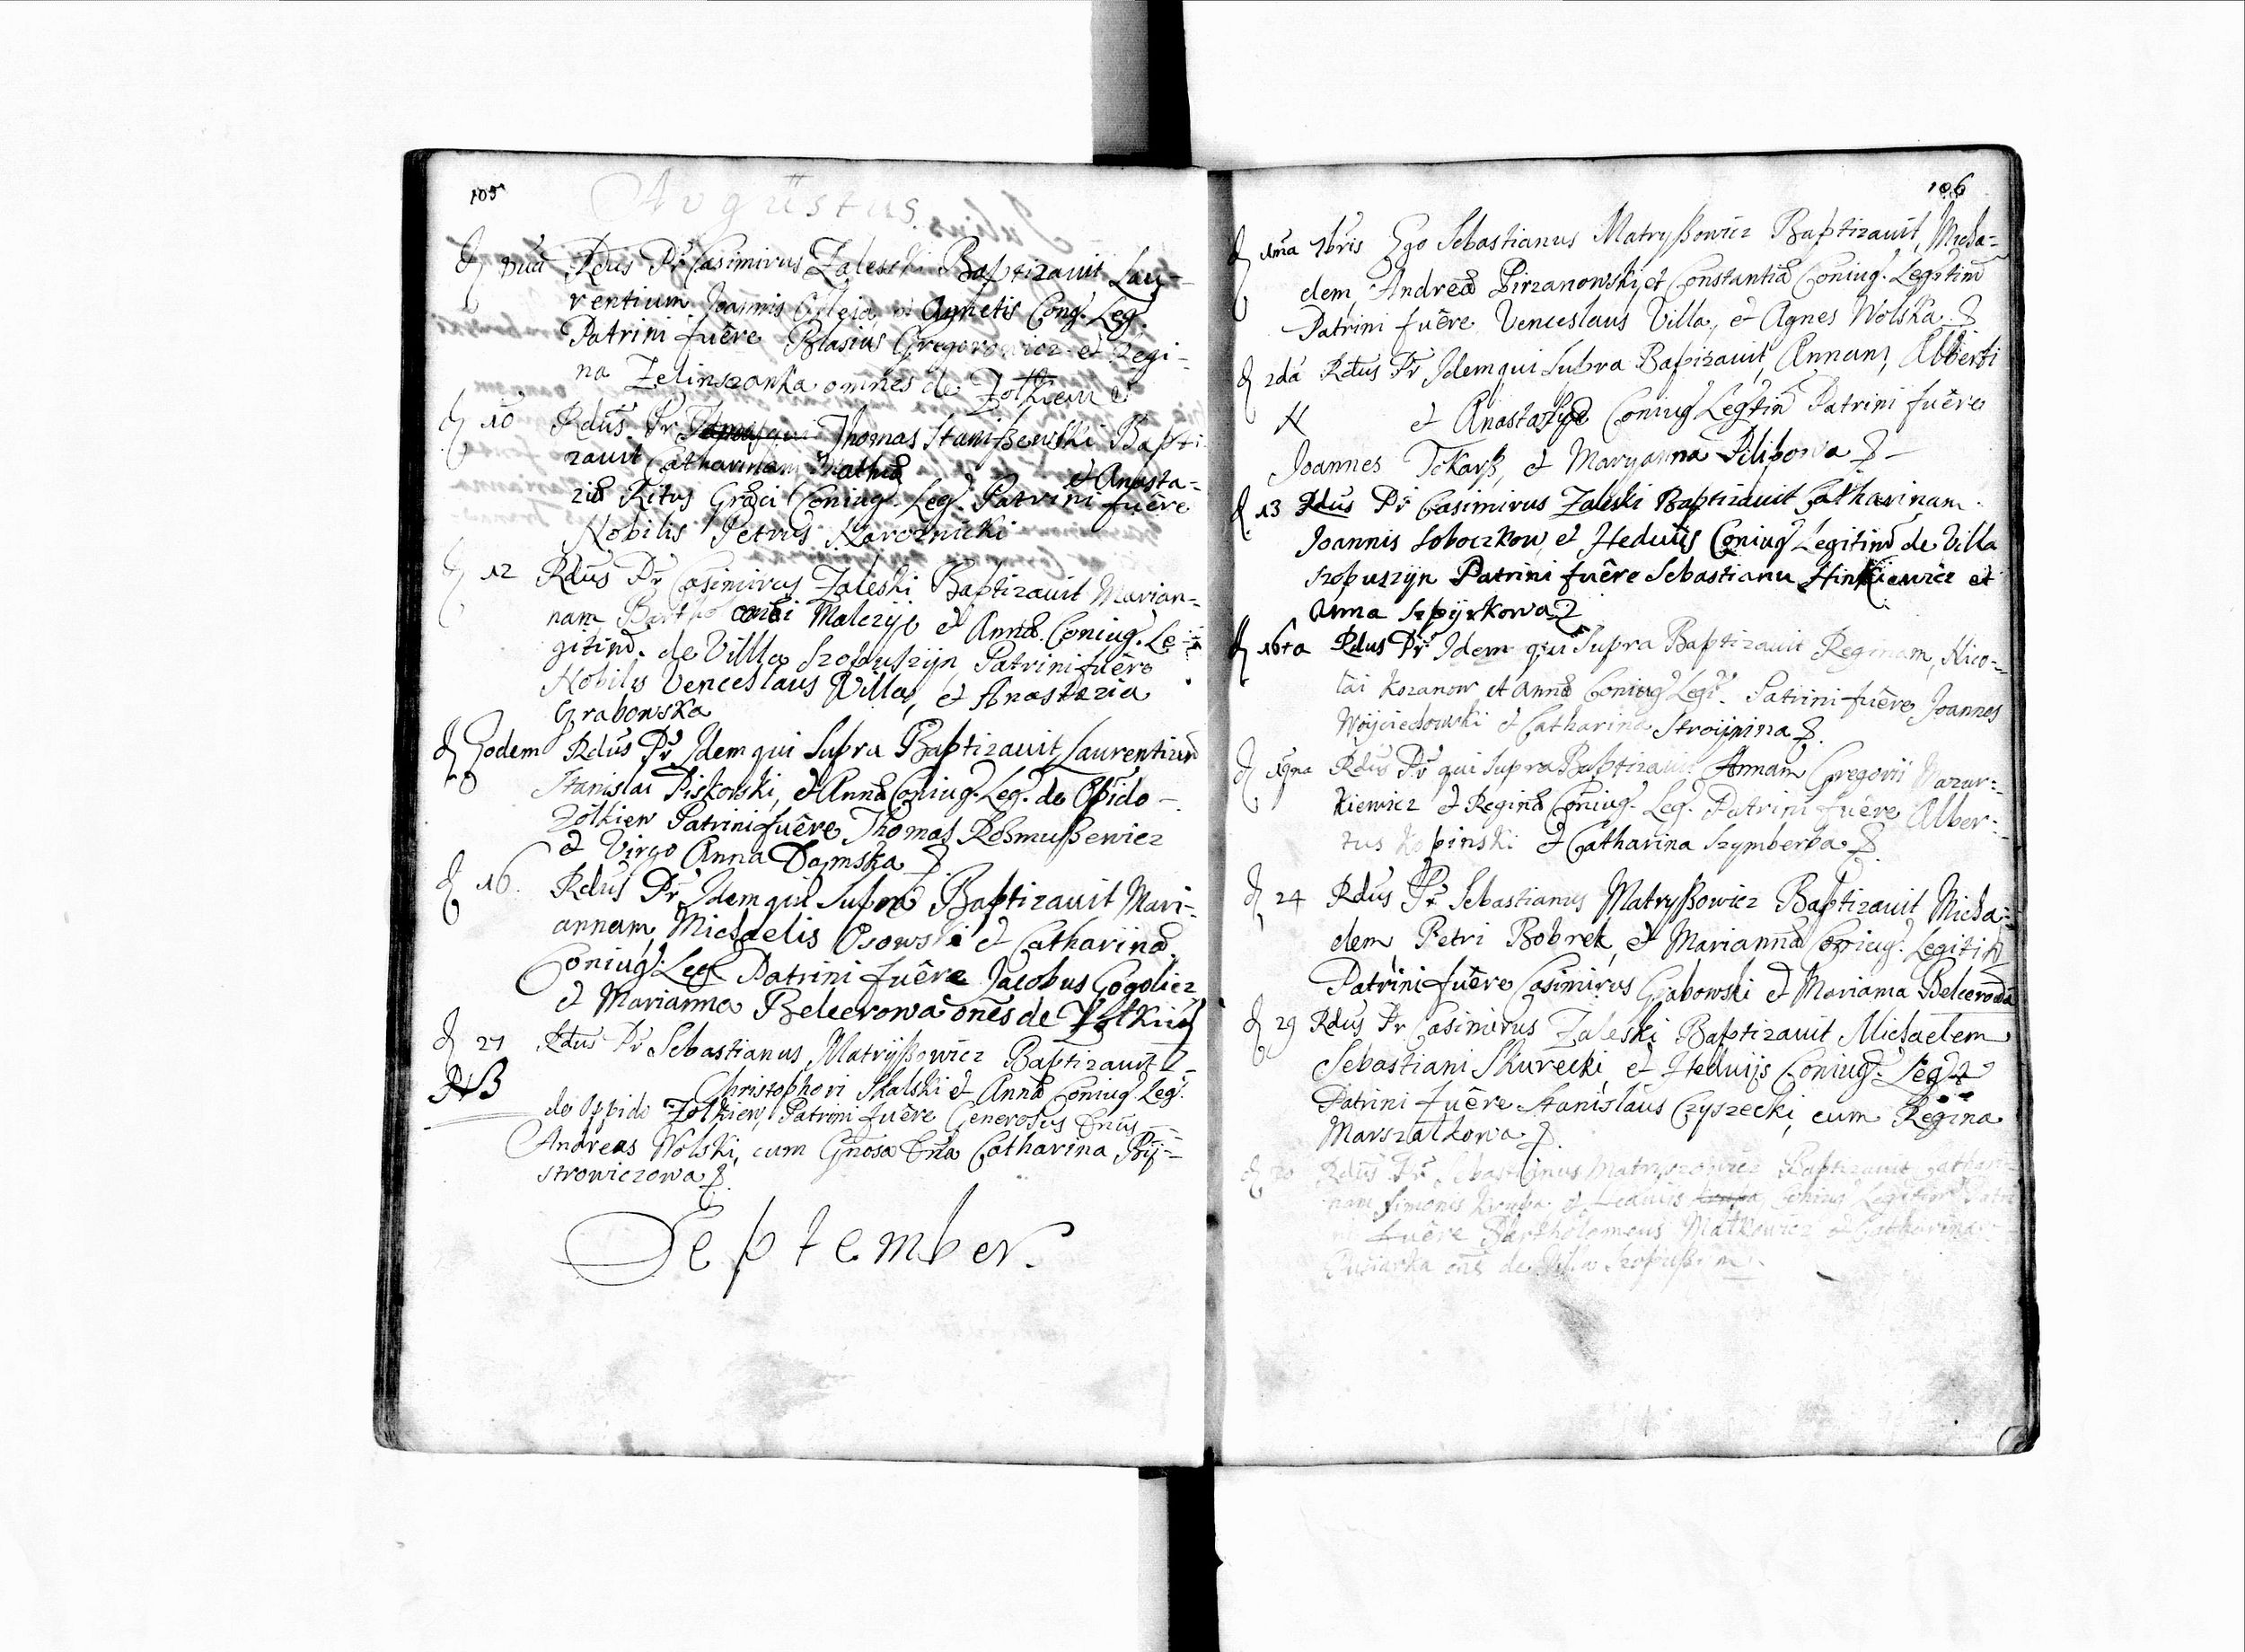 105
Augustus
Rdus Pr Casimirus Zaleski Baptizauit Lau-
rentium Joannis et Agnetis Cong. Leg.
Patrini fuêre Blasius Gregorowicz et Regi-
na Zelinszanka omnes de Zolkiew
d 10 Rdus Pr Thomas Staniszewski Bapti
zauit Catharinam Mathiæ et Anasta-
ziæ Ritus Græci Coniug. Leg. Patrini fuêre
Nobilis Petrus Naroznicki
d 12 Rdus Pr Casimirus Zaleski Baptizauit Marian-
nam Malczyp et Annæ Coniug. Le-
gitim. de Villa Szopuszyn Patrini fuêre
Nobilis Venceslaus Villa, et Anastazia
Grabowska
d Eodem Rdus Pr Idem qui Supra Baptizauit Laurentium
Stanislai Piskorski, et Annæ Coniug. Leg. de Opido
Zolkiew Patrini fuêre Thomas Rosmußewicz
et Virgo Anna Damska
d 16. Rdus Pr Idem qui Supra Baptizauit Mari-
annam, Michaelis Osowski et Catharinæ
Coniug. Leg Patrini fuêre Jacobus Gogolicz
et Marianna Belcerowa oñes de Zolkiew
d 27 Rdus Pr Sebastianus Matryßowicz Baptizauit
NB Christophori Skalski et Annæ Coniug. Leg.
de Oppido Zolkiew, Patrini fuêre Generosus Dnus
Andreas Wolski, cum Gnosa Dna Catharina Bij-
strowiczowa
September
106
d 1ma 7bris Ego Sebastianus Matryßowicz Baptizauit, Micha-
elem, Andreæ Pirzanowski, et Constantiæ Coniug. Legitim
Patrini fuêre Venceslaus Villa, et Agnes Wolska
d 2da Rdus Pr Idem qui Supra Bapizauit, Annam, Alberti
N et Anastasyæ Coniug Legtim Patrini fuêre
Joannes Tokarß, et Maryanna Pilipowa
d 13 Rdus Pr Casimirus Zaleski Baptizauit Catharinam
Joannis Soboczkow, et Hedvijs Coniug Legitim de Villa
Szopuszyn Patrini fuêre Sebastianu Hinkiewicz et
Anna Szpyrkowa
d 16ta Rdus Pr Idem qui Supra Baptizauit Reginam, Nico-
lai Kozanow, et Annæ Coniug Legi. Patrini fuêre Joannes
Woyciechowski et Catharina Stroijnina
d 19na Rdus Pr qui Supra Baptizauit Annam Gregorii Mazur-
kiewicz et Reginæ Coniug. Leg. Patrini fuêre Alber-
tus Kopinski et Catharina Szymberka
d 24 Rdus Pr Sebastianus Matryßowicz Baptizauit Micha-
elem, Petri Bobrek, et Mariannæ Coniug. Legitim
Patrini fuêre Casimirus Grabowski et Marianna Belcerowa
d 29 Rdus Pr Casimirus Zaleski Baptizauit Michaelem
Sebastiani Skurecki, et Hedvijs Coniug. Legit
Patrini fuêre Stanislaus Czyszecki, cum Regina
Marszalkowa
d 30 Rdus Pr Sebastianus Matryszowicz Baptizauit Cathari-
nam Simonis Krupa et Heduuis Coniug Legitim Patri
ni fuêre Bartholomeus Malkowicz et Catharina
oñs de Villa Szopußin